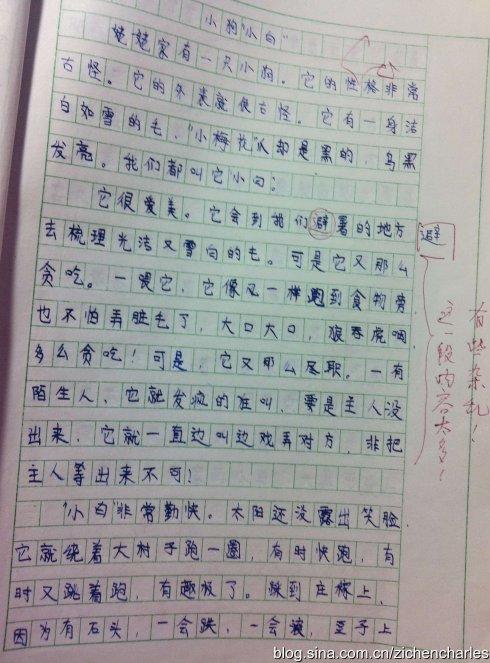 小狗"小白"
姥姥家有一只小狗。它的性格非常
古怪。它的外表就很古怪。它有一身洁
白如雪的毛，"小梅花"又却是黑的，乌黑
发亮。我们都叫它小白。
它很爱美。它会到我们避暑的地方
避
去梳理光洁又雪白的毛。可是它又那么
贪吃。一喂它，它像风一样跑到食物旁
也不怕弄脏毛了，大口大口，狼吞虎咽，
多么贪吃！可是，它又那么尽职。一有
陌生人，它就发疯的狂叫，要是主人没
出来，它就一直边叫边戏弄对方，非把
主人等出来不可！
有些杂乱！
这一段内容太多！
"小白"非常勤快。太阳还没露出笑脸，
它就绕着大村子跑一圈，有时快跑，有
时又跳着跑，有趣极了。跳到庄稼上，
因为有石头，一会跌，一会滚，至于上
blog.sina.com.cn/zichencharles